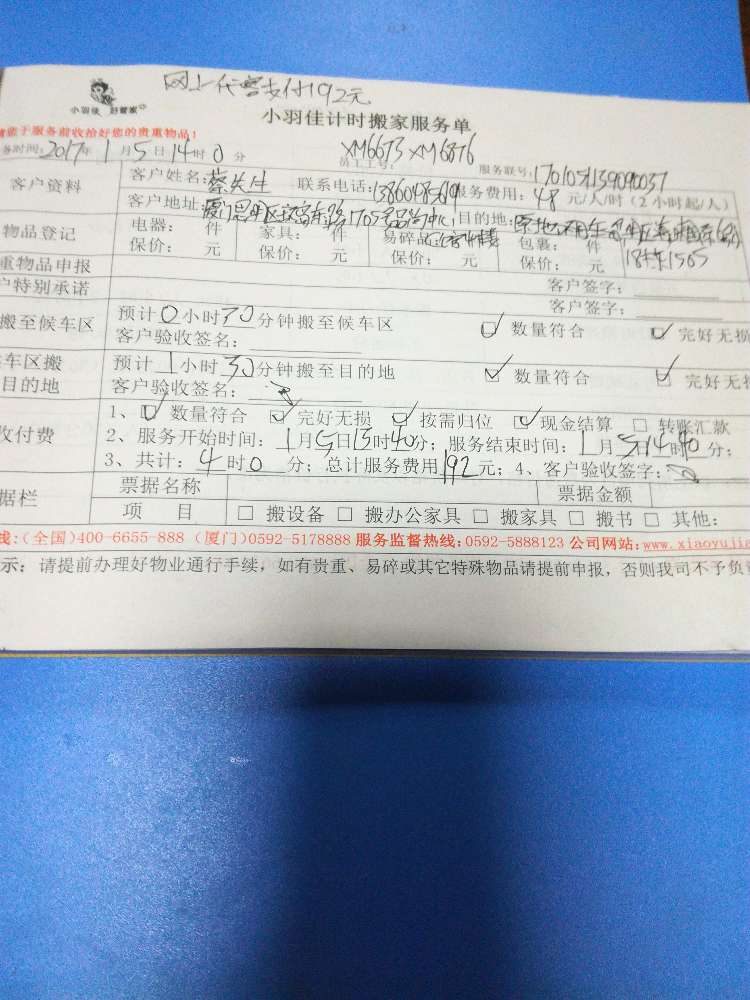 网上代客支付192元
小羽佳 好管家
小羽佳计时搬家服务单
服务前收拾好您的贵重物品!
务时间:2017年1月5日14时0分 员工工号: XM6673 XM6876 服务联号:
客户资料 客户姓名:蔡先生 联系电话: 服务费用:48元/人/时(2小时起/人)
客户地址:厦门思明区 目的地:
物品登记 电器: 件 家具: 件 易碎品 包裹: 件
保价: 元 保价: 元 保价: 元 保价: 元
重物品申报 客户签字:
户特别承诺 客户签字:
搬至候车区 预计0小时30分钟搬至候车区 ☑ 数量符合 ☑ 完好无损
客户验收签名:
车区搬 预计1小时30分钟搬至目的地 ☑ 数量符合 ☑ 完好无
目的地 客户验收签名:
收付费 1、☑ 数量符合 ☑ 完好无损 ☑ 按需归位 ☑ 现金结算 □ 转账汇款
2、服务开始时间:1月5日 时40分; 服务结束时间:1月5日14时40分;
3、共计:4时0分; 总计服务费用192元; 4、客户验收签字:
据栏 票据名称 票据金额
项 目 □ 搬设备 □ 搬办公家具 □ 搬家具 □ 搬书 □ 其他:
线:(全国)400-6655-888 (厦门)0592-5178888 服务监督热线:0592-5888123 公司网站:www.xiaoyujia
示: 请提前办理好物业通行手续,如有贵重、易碎或其它特殊物品请提前申报,否则我司不予负